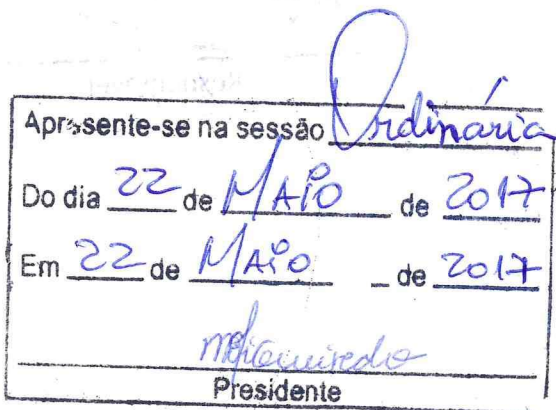 Apresente-se na sessão Ordinária
Do dia 22 de MAIO de 2017
Em 22 de MAIO de 2017
Presidente